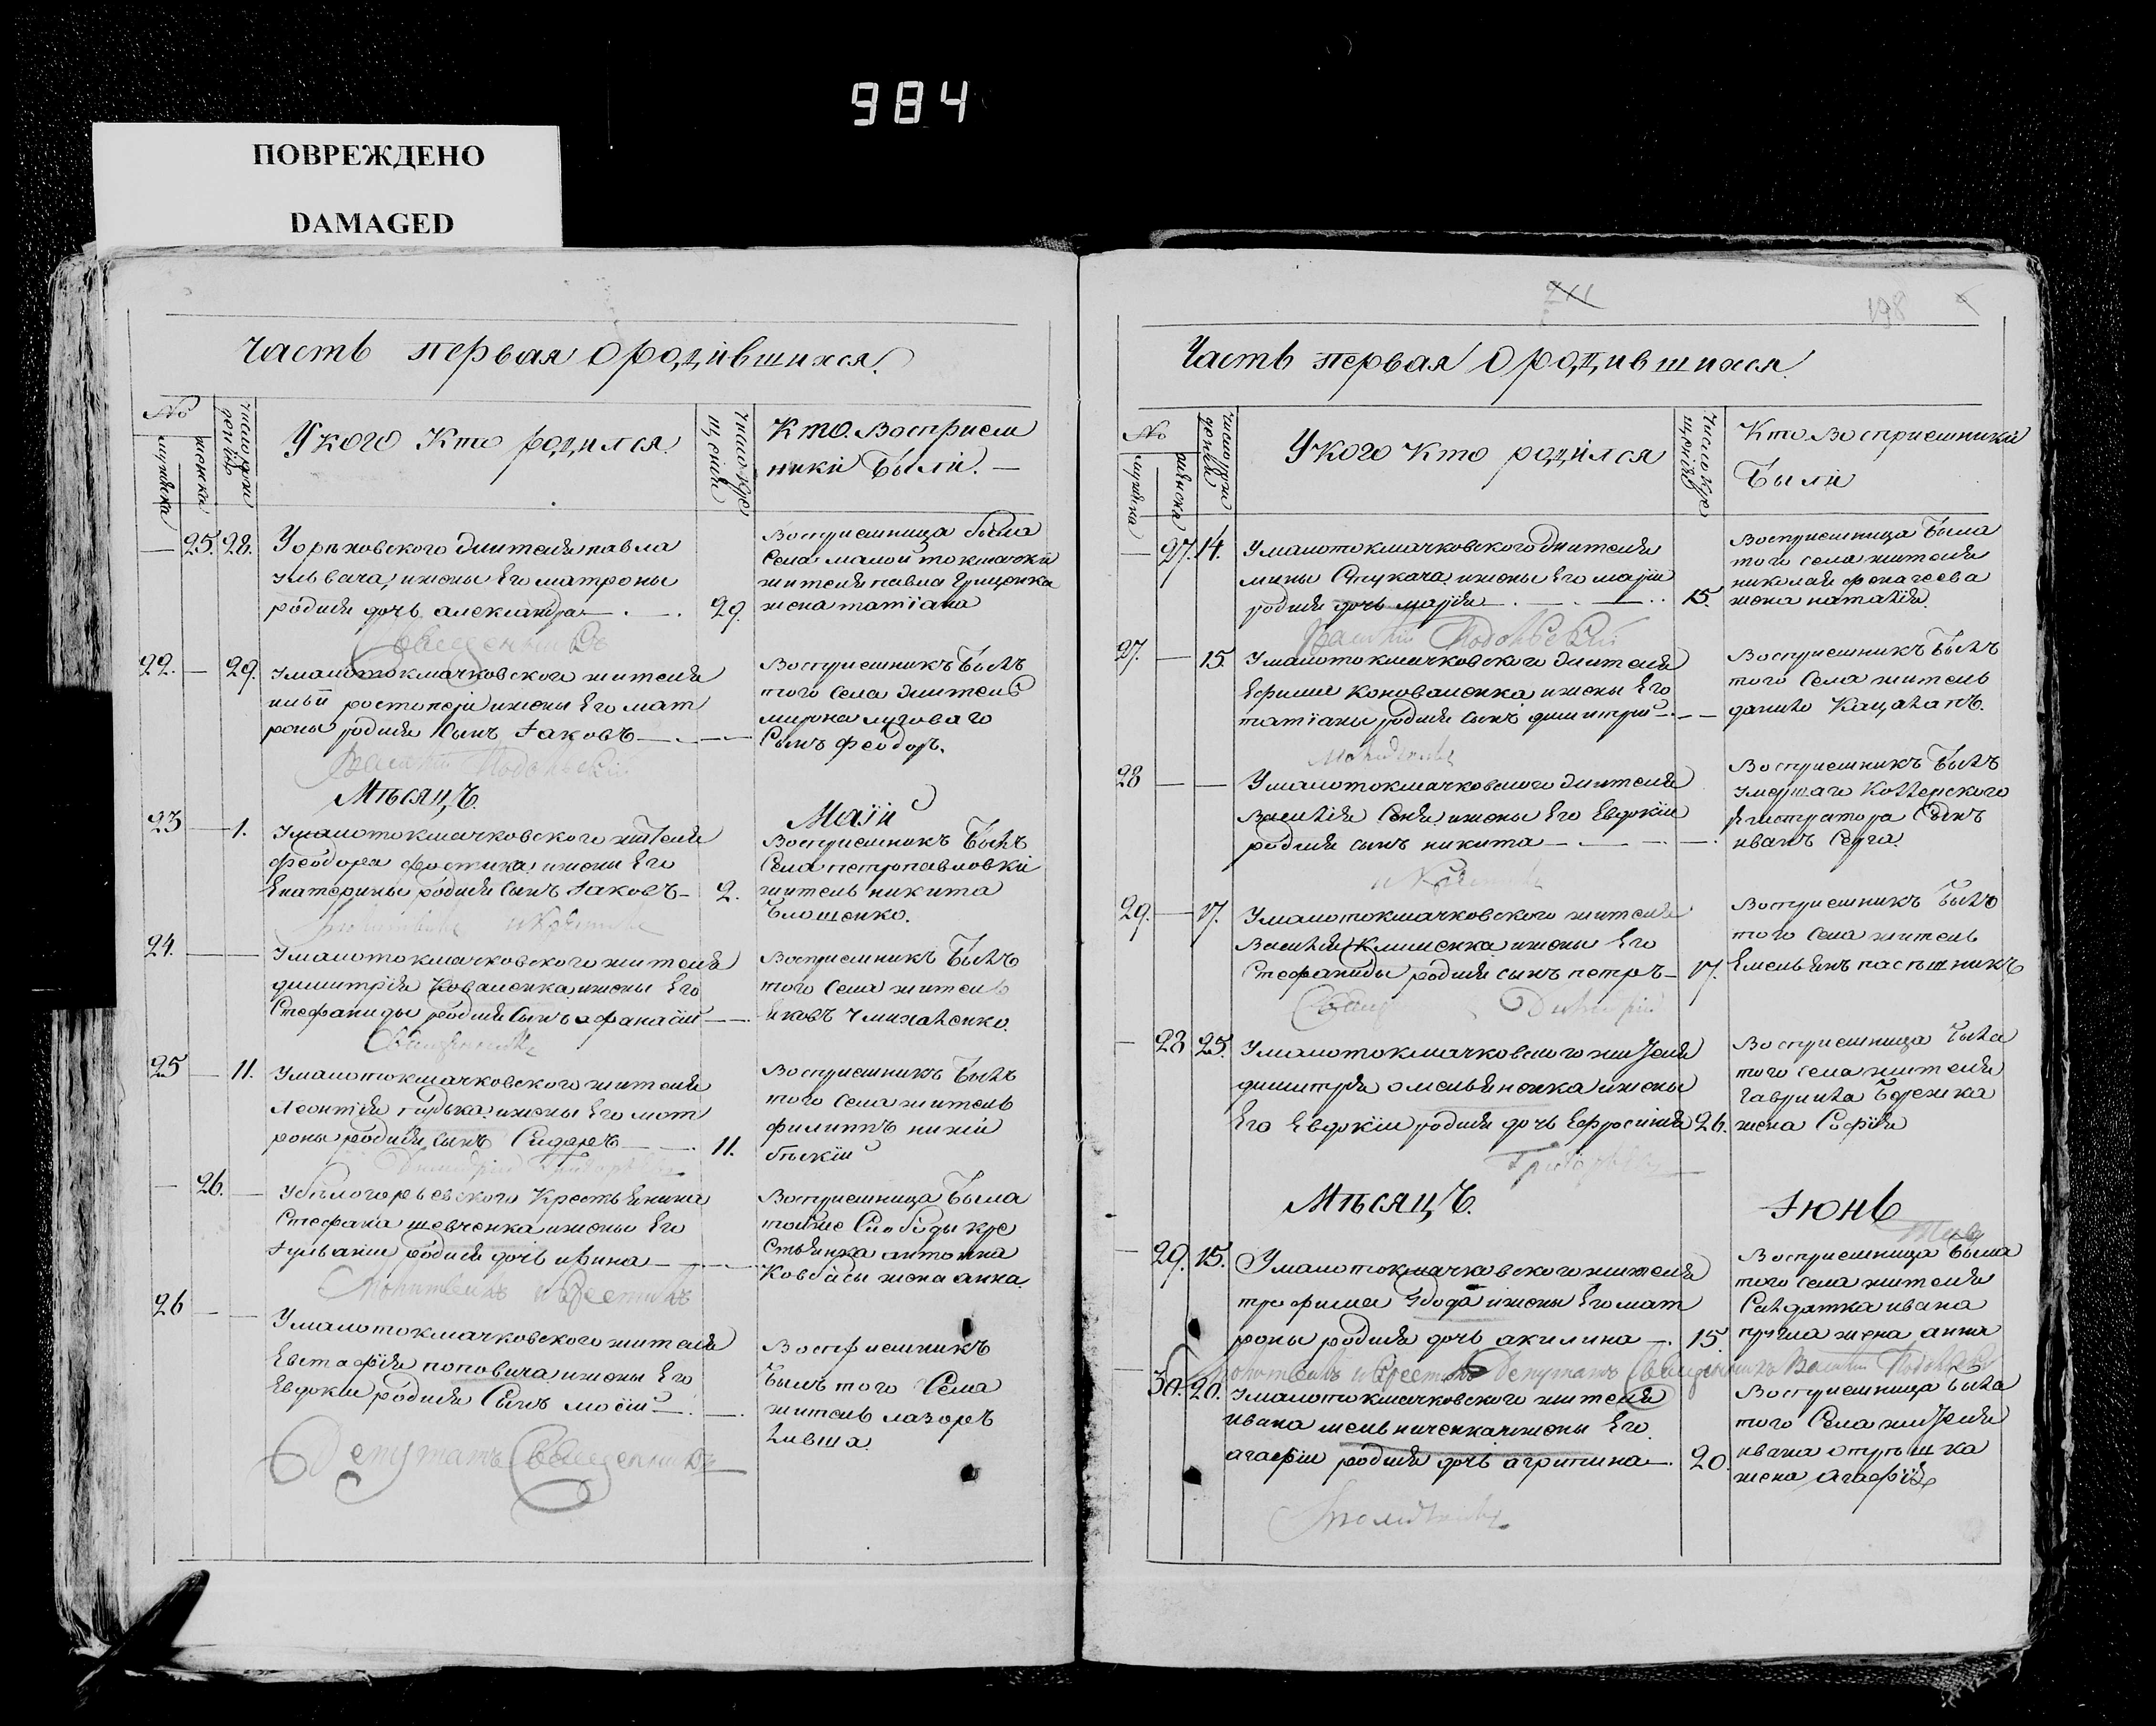 984
ПОВРЕЖДЕНО
DAMAGED
Часть первая о родившихся.
№
мужска
женска
число рож
деній
У кого кто родился
число кре
щеній
Кто восприем
ники были. —
— 25. 28. У орѣховского жителя павла
и жены Его матроны
родися дочь александра — . — . 29.
Восприемница была
Села малой токмачки
жителя павла Грищенка
жена татіана
Священникъ
22. — 29. У малотокмачковского жителя
и жены Его мат
роны родися сынъ Іаковъ — . — . —
Восприемникъ былъ
того Села житель
мирона лугового
Сынъ феодоръ.
Василій Подольскій
Мѣсяцъ. Маій
23 — 1. У малотокмачковского жителя
феодора и жены Его
Екатерины родися сынъ Іаковъ — 2.
Восприемникъ былъ
Села петропавловкі
житель никита
Блошенко.
молитвилъ и крестилъ
24. — — У малотокмачковского жителя
димитрія Коваленка и жены Его
Стефаниды родися сынъ афанасій — —
Восприемникъ былъ
того Села житель
Яковъ Чмихаленко.
Священникъ
25 — 11. У малотокмачковского жителя
Леонтія гирька и жены Его мат
роны родися сынъ Сидоръ — . — 11.
Восприемникъ былъ
того Села житель
филиппъ нижні
бѣскій
Димитрій Григорьевъ
— 26. — У бѣлогорьевского крестьянина
Стефана шевченка и жены Его
Іуліаніи родися дочь ирина — . —
Восприемница была
тойже Слободы кре
стьянка антоніна
Ковбасы жена анна
Молитвилъ и крестилъ
26 — — У малотокмачковского жителя
Евстафія поповича и жены Его
Евдокіи родися Сынъ моѵсій — . — .
Восприемникъ
былъ того Села
житель лазоръ
Ливша
Депутатъ Священникъ
211
198
Часть первая о родившихся.
№
мужска
женска
число рож
деній
У кого кто родился
число кре
щеній
Кто восприемники
были
— 27. 14. У малотокмачковского жителя
мины Стукача и жены Его маріи
родися дочь марія — . — . — . . 15.
Восприемница была
того села жителя
николая фокагеева
жена наталія.
Василій Подольскій
27. — 15. У малотокмачковского жителя
Ефима коноваленка и жены Его
татіаны родися сынъ димитрій — . —
Восприемникъ былъ
того Села житель
данило Кацалапъ.
молитвилъ
28 — — У малотокмачковского жителя
Василія Сокія и жены Его Евдокіи
родися сынъ никита — . — . — .
Восприемникъ былъ
умершаго Коллерского
регистратора Сынъ
иванъ Серга.
и Крестилъ
29. — 17. У малотокмачковского жителя
Василія Клименка и жены Его
Стефаниды родися сынъ петръ — 17.
Восприемникъ былъ
того Села житель
Емельянъ пасѣшникъ
Священникъ Димитрій
— 28 25. У малотокмачковского жителя
димитрія омельяненка и жены
Его Евдокіи родися дочь Ефросинія 26.
Восприемница была
того села жителя
гаврила Бережка
жена Софія
Григорьевъ
Мѣсяцъ. Іюнь
— 29. 15. У малотокмачковского жителя
трофима и жены Его мат
роны родися дочь акилина — . 15.
Восприемница была
того села жителя
Солдатка ивана
жена анна
молитвилъ и крестилъ Депутатъ Священникъ Василій Подольскій
— 30. 20. У малотокмачковского жителя
ивана мельниченка и жены Его
агафіи родися дочь агрипина — . 20.
Восприемница была
того Села жителя
ивана отрѣшка
жена Агафія
молитвилъ